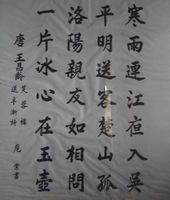 寒雨連江亱入吳
平明送客楚山孤
洛陽親友如相問
一片冰心在玉壺
唐王昌齡芙蓉樓
送辛漸詩
書